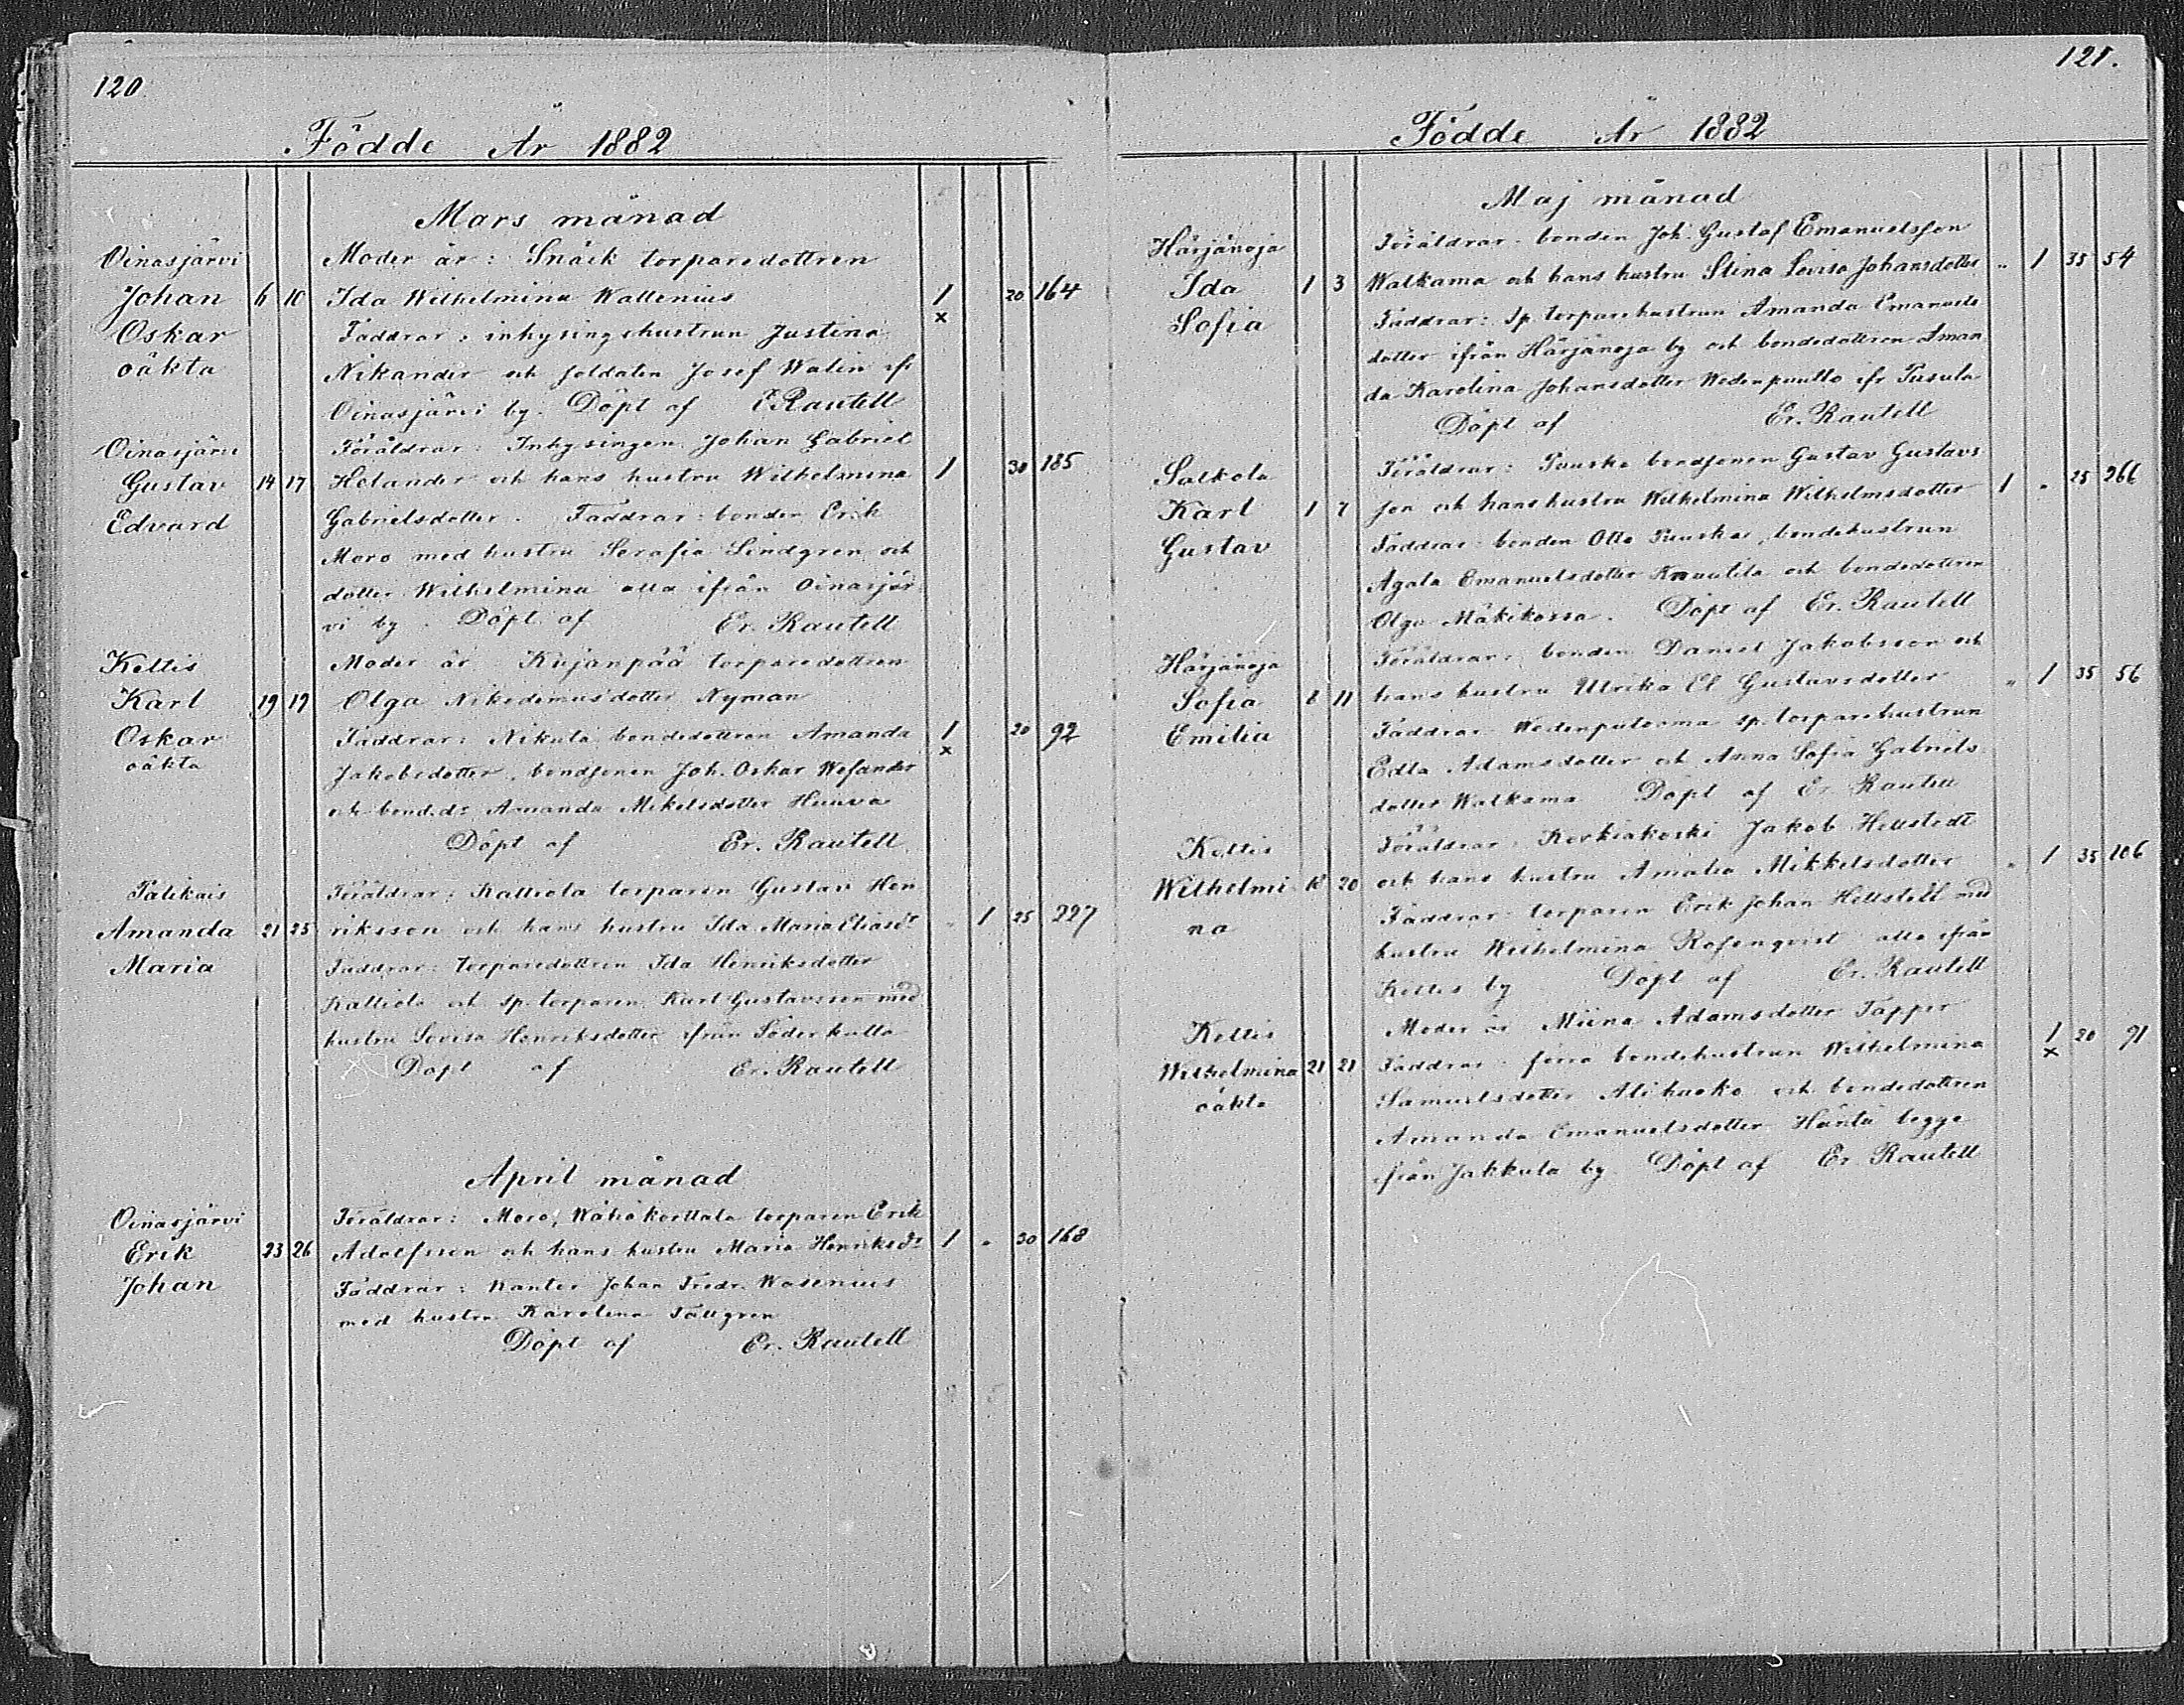 120.
Födde År 1882
Mars månad
Oinasjärvi Moder är: Snäik torparedottren
Johan 6 10 Ida Wilhelmina Wallenius 1 20 164
x
Oskar Faddrar: inhysingshustrun Justina
oäkta Nikander och soldaten Josef Walin ifr
Oinasjärvi by. Döpt af E Rautell
Oinasjärvi Föräldrar: Inhysingen Johan Gabriel
Gustav 14 17 Helander och hans hustru Wilhelmina 1 30 185
Edvard Gabrielsdotter. Faddrar: bonden Erik
Moro med hustru Serafia Lindgren och
dotter Wilhelmina alla ifrån Oinasjär
vi by. Döpt af Er. Rautell
Keltis Moder är Kujanpää torparedottren
Karl 19 19 Olga Nikodemusdotter Nyman
Oskar Faddrar: Nikula bondedottren Amanda 1 20 92
x
oäkta Jakobsdotter, bondsonen Joh. Oskar Wesander
och bond.dr Amanda Mikelsdotter
Döpt af Er. Rautell
Palikais Föräldrar: Kalliola torparen Gustav Hen
Amanda 21 25 riksson och hans hustru Ida Maria Eliasdr " 1 25 227
Maria Faddrar: torparedottren Ida Henriksdotter
Kalliola och sp. torparen Karl Gustavsson med
hustru Lovisa Henriksdotter ifrån Söderkulla
Döpt af Er. Rautell
April månad
Oinasjärvi Föräldrar: Moro, Wähäkorttala torparen Erik
Erik 23 26 Adolfsson och hans hustru Maria Henriksdr 1 " 30 168
Johan Faddrar: Kantor Johan Fredr. Wasenius
med hustru Karolina Tallgren
Döpt af Er. Rautell
121.
Födde År 1882
Maj månad
Härjänoja Föräldrar: bonden Joh. Gustaf Emanuelsson
Ida 1 3 Walkama och hans hustru Stina Lovisa Johansdotter " 1 35 54
Sofia Faddrar: Sp. torparehustrun Amanda Emanuels
dotter ifrån Härjänoja by och bondedottren Aman
da Karolina Johansdotter Wedenpuollo ifr Pusula
Döpt af Er. Rautell
Salkola Föräldrar: Puuska bondsonen Gustav Gustavs
Karl 1 7 son och hans hustru Wilhelmina Wilhelmsdotter 1 " 25 266
Gustav Faddrar: bonden Otto Puuska, bondehustrun
Agata Emanuelsdotter Knuutila och bondedottren
Olga Mäkikorsa. Döpt af Er. Rautell
Härjänoja Föräldrar: bonden Daniel Jakobsson och
Sofia 8 11 hans hustru Ulrika El Gustavsdotter " 1 35 56
Emilia Faddrar sp. torparehustrun
Edla Adamsdotter och Anna Sofia Gabriels
dotter Walkama Döpt af Er. Rautell
Keltis Föräldrar: Korkiakoski Jakob Hellstedt
Wilhelmi 18 20 och hans hustru Amalia Mikkelsdotter " 1 35 106
na Faddrar: torparen Erik Johan Hellstell med
hustru Wilhelmina Rosenqvist alla ifrån
Keltis by Döpt af Er. Rautell
Keltis Moder är Miina Adamsdotter Tapper
Wilhelmina 21 21 Faddrar: förra bondehustrun Wilhelmina 1 20 91
x
oäkta Samuelsdotter Alihaoko och bondedottren
Amanda Emanuelsdotter Häntä begge
ifrån Jakkula by. Döpt af Er. Rautell